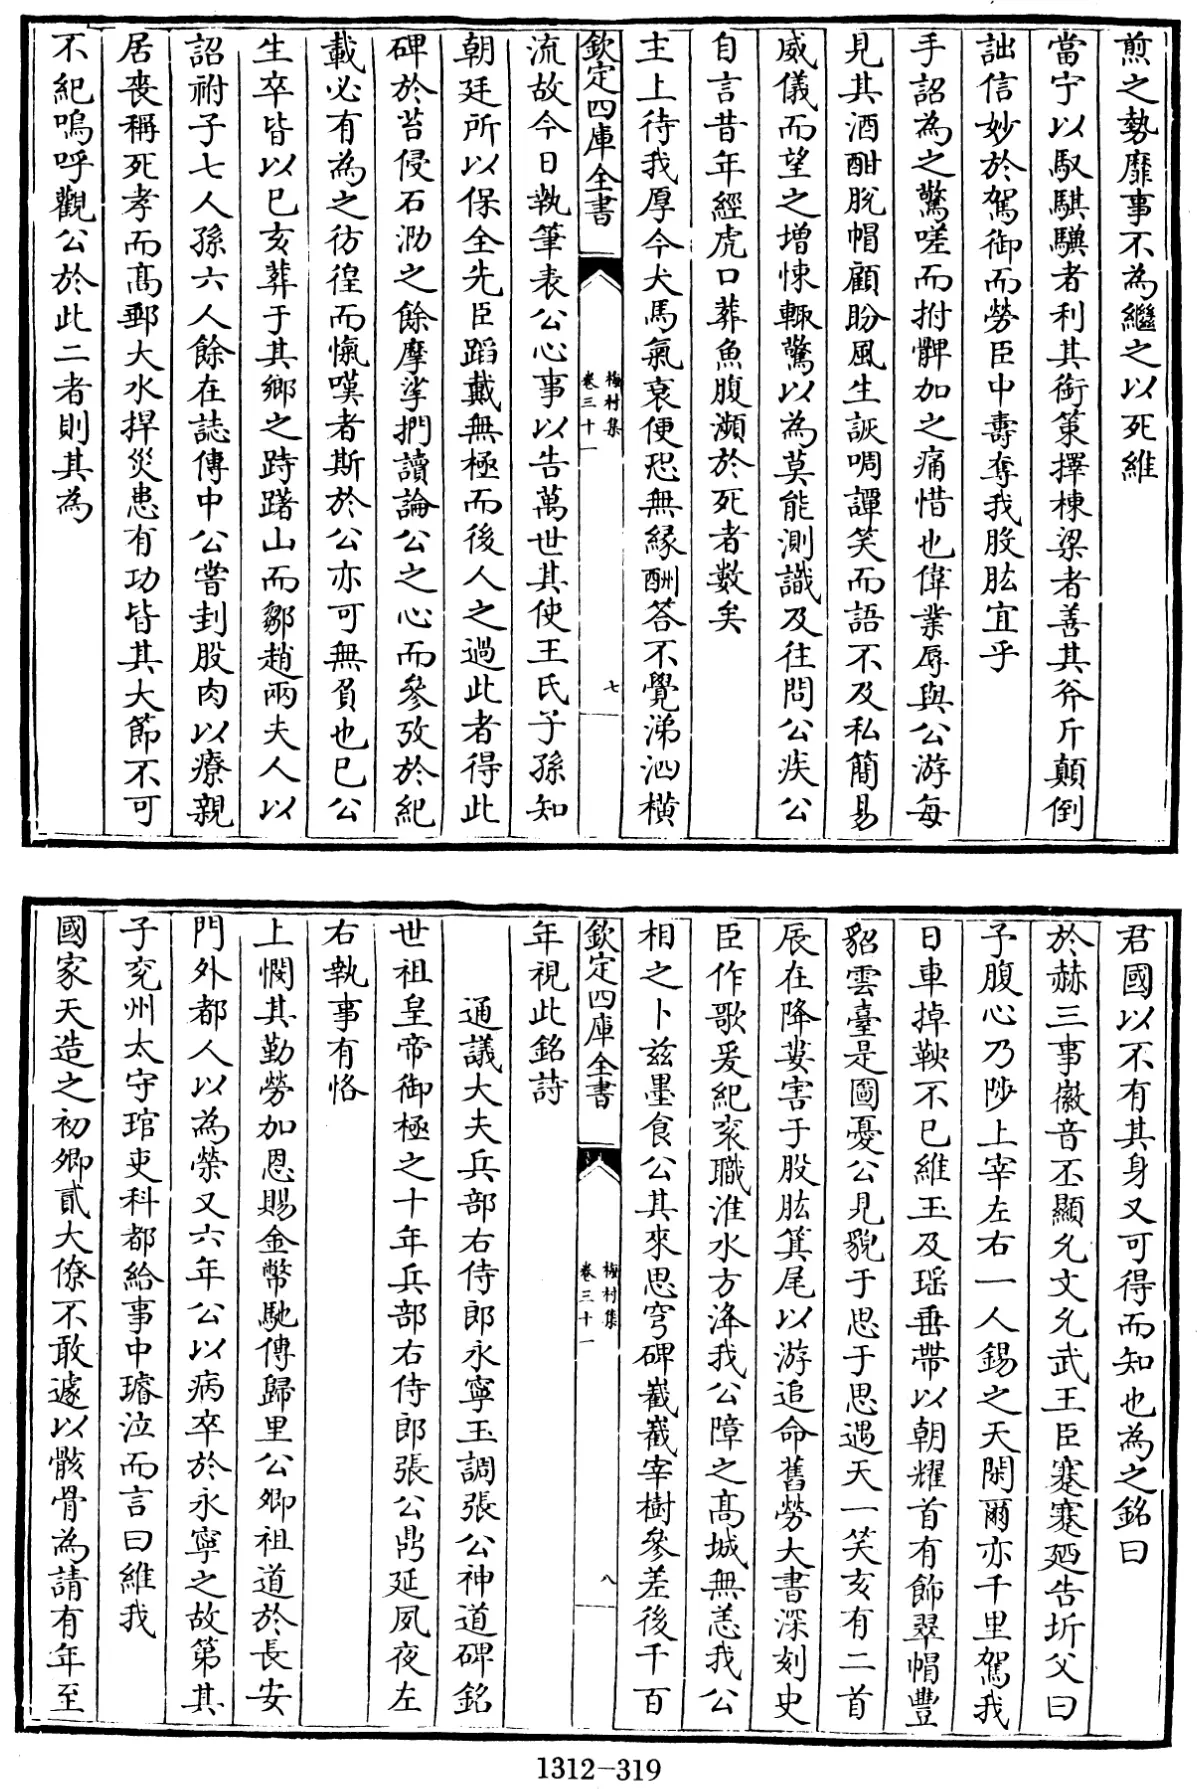 煎之勢靡事不為繼之以死維
當宁以馭騏驥者利其銜策擇棟梁者善其斧斤顛倒
詘信妙於駕御而勞臣中壽奪我股肱宜乎
手詔為之驚嗟而拊髀加之痛惜也偉業辱與公游每
見其酒酣脫帽顧盼風生詼啁譚笑而語不及私簡易
威儀而望之增悚輒驚以為莫能測識及往問公疾公
自言昔年經虎口葬魚腹瀕於死者數矣
主上待我厚今犬馬氣衰便恐無緣酬答不覺涕泗橫
欽定四庫全書
梅村集
卷三十一
七
流故今日執筆表公心事以告萬世其使王氏子孫知
朝廷所以保全先臣蹈戴無極而後人之過此者得此
碑於苔侵石泐之餘摩挲捫讀論公之心而參攷於紀
載必有為之彷徨而愾嘆者斯於公亦可無負也已公
生卒皆以己亥葬于其鄉之跱躇山而鄒趙兩夫人以
詔祔子七人孫六人餘在誌傳中公嘗刲股肉以療親
居喪稱死孝而高郵大水捍災患有功皆其大節不可
不紀嗚呼觀公於此二者則其為
君國以不有其身又可得而知也為之銘曰
於赫三事徽音丕顯允文允武王臣蹇蹇廼告圻父曰
予腹心乃陟上宰左右一人錫之天閑爾亦千里駕我
日車掉鞅不已維玉及瑶垂帶以朝耀首有飾翠帽豐
貂雲臺是圖憂公見貌于思于思遇天一笑亥有二首
辰在降婁害于股肱箕尾以游追命舊勞大書深刻史
臣作歌爰紀衮職淮水方洚我公障之高城無恙我公
相之卜兹墨食公其來思穹碑嶻嶻宰樹參差後千百
欽定四庫全書
梅村集
卷三十一
八
年視此銘詩
通議大夫兵部右侍郎永寧玉調張公神道碑銘
世祖皇帝御極之十年兵部右侍郎張公鼎延夙夜左
右執事有恪
上憫其勤勞加恩賜金幣馳傳歸里公卿祖道於長安
門外都人以為榮又六年公以病卒於永寧之故第其
子兖州太守琯吏科都給事中璿泣而言曰維我
國家天造之初卿貳大僚不敢遽以骸骨為請有年至
1312-319